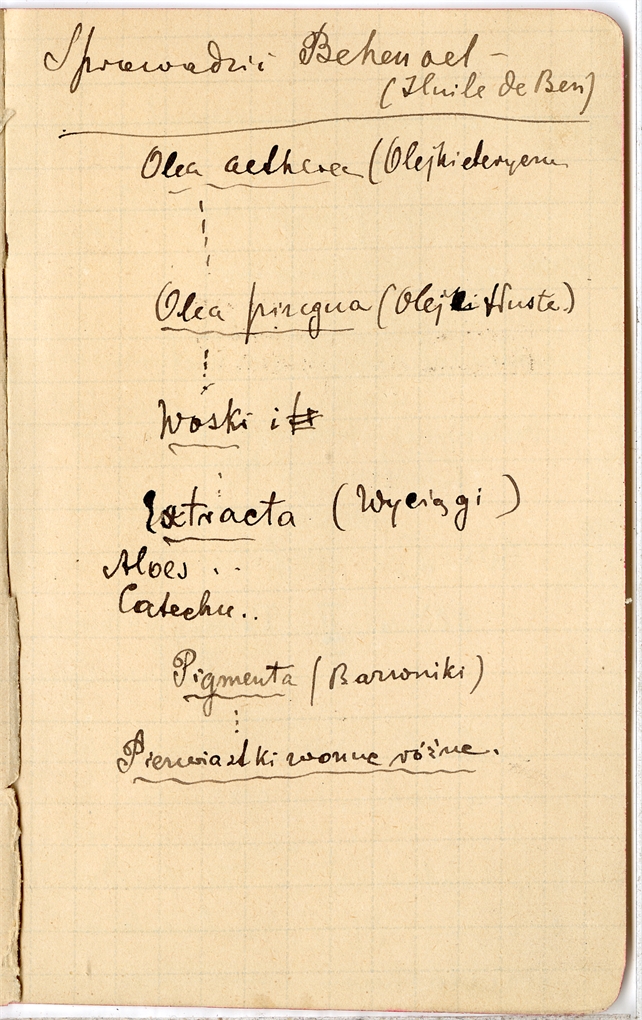 Sprowadzić Behenoel –
(Huile de Ben)
Olea aetherea (Olejki eteryczne
Olea pinguia (Olejki tłuste)
Woski i
Extracta (Wyciągi)
Aloes ..
Catechu..
Pigmenta (Barwniki)
Pierwiastki wonne różne.